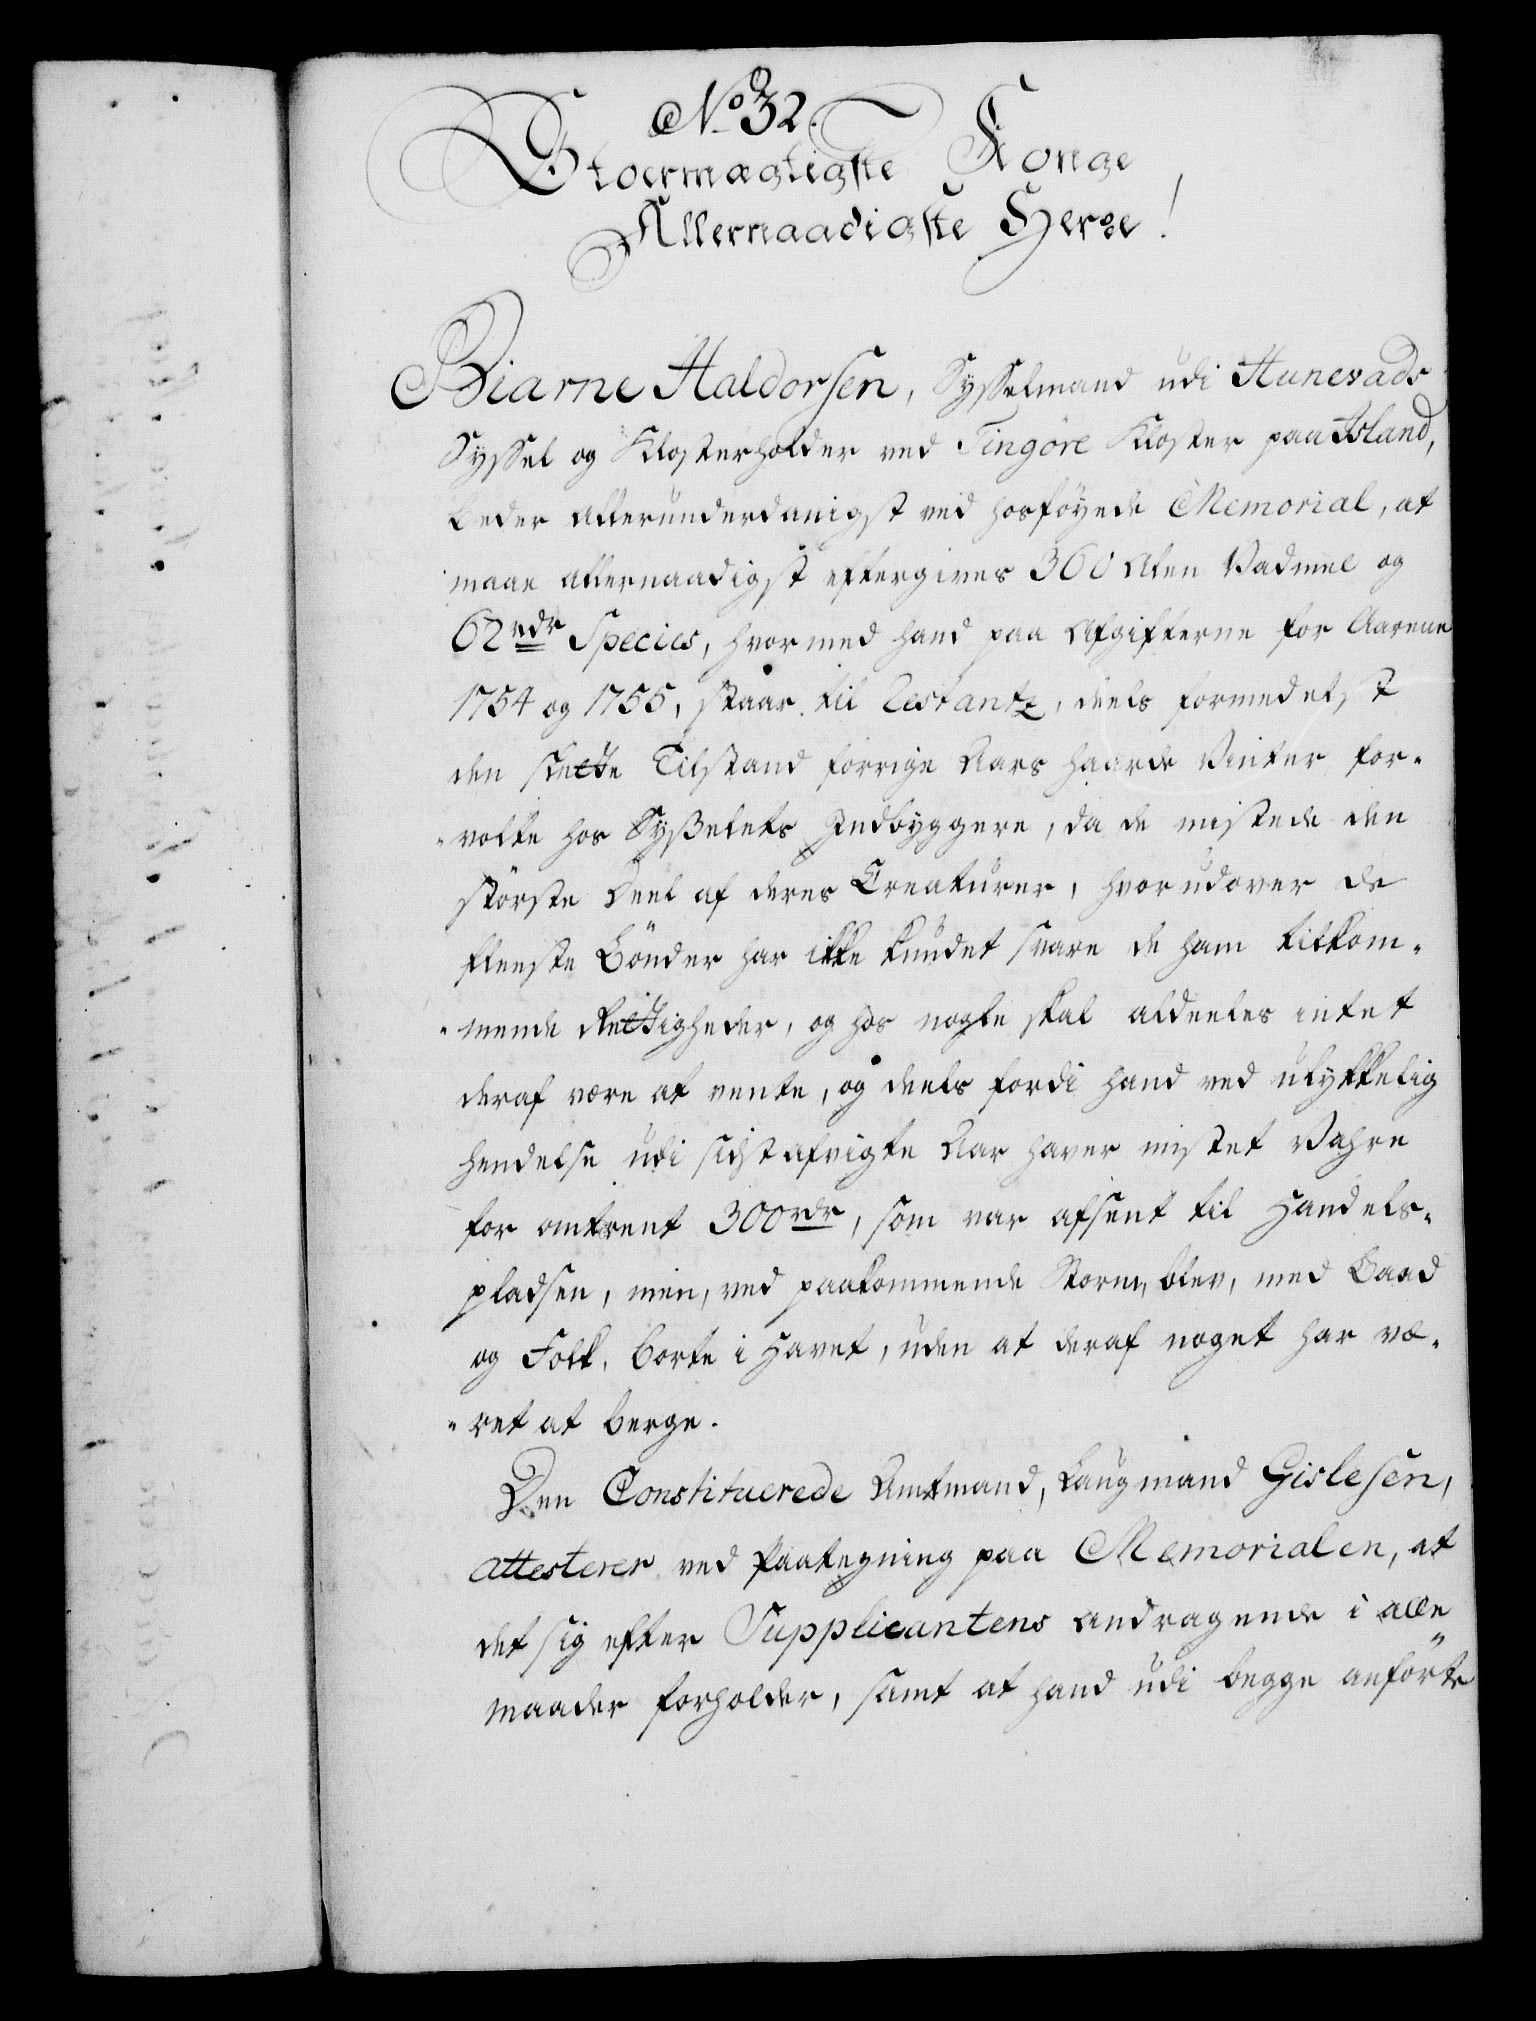 No 32.
Stoermægtigste Konge
Allernaadigste Herre!
Biarne Haldorsen, Sysselmand udi Hunevads
Syssel og Klosterholder ved Tingöre Kloster paa Island,
beder allerunderdanigst ved hosföyede Memorial, at
maae allernaadigst eftergives 360 Alen Vadmel og
62 rdr Species, hvormed hand paa Afgifterne for Aarene
1754 og 1755, staar til Restantz, deels formedelst
den slette Tilstand forrige Aars haarde Vinter for-
-volte hos Syßelets Indbyggere, da de mistede den
störste Deel af deres Creaturer, hvorudover de
fleeste Bönder har ikke kundet svare de ham tilkom-
-mende Rettigheder, og hos nogle skal aldeeles intet
deraf være at vente, og deels fordi hand ved ulykkelig
hendelse udi sidstafvigte Aar haver mistet Vahre
for omtrent 300 rdr, som var afsent til Handels-
pladsen, men, ved paakommende Storm, blev, med Baad
og Folk, borte i Havet, uden at deraf noget har væ-
-ret at berge.
Den Constituerede Amtmand, Laugmand Gislesen,
attesterer ved Paategning paa Memorialen, at
det sig efter Supplicantens andragende i alle
maader forholder, samt at hand udi begge anförte